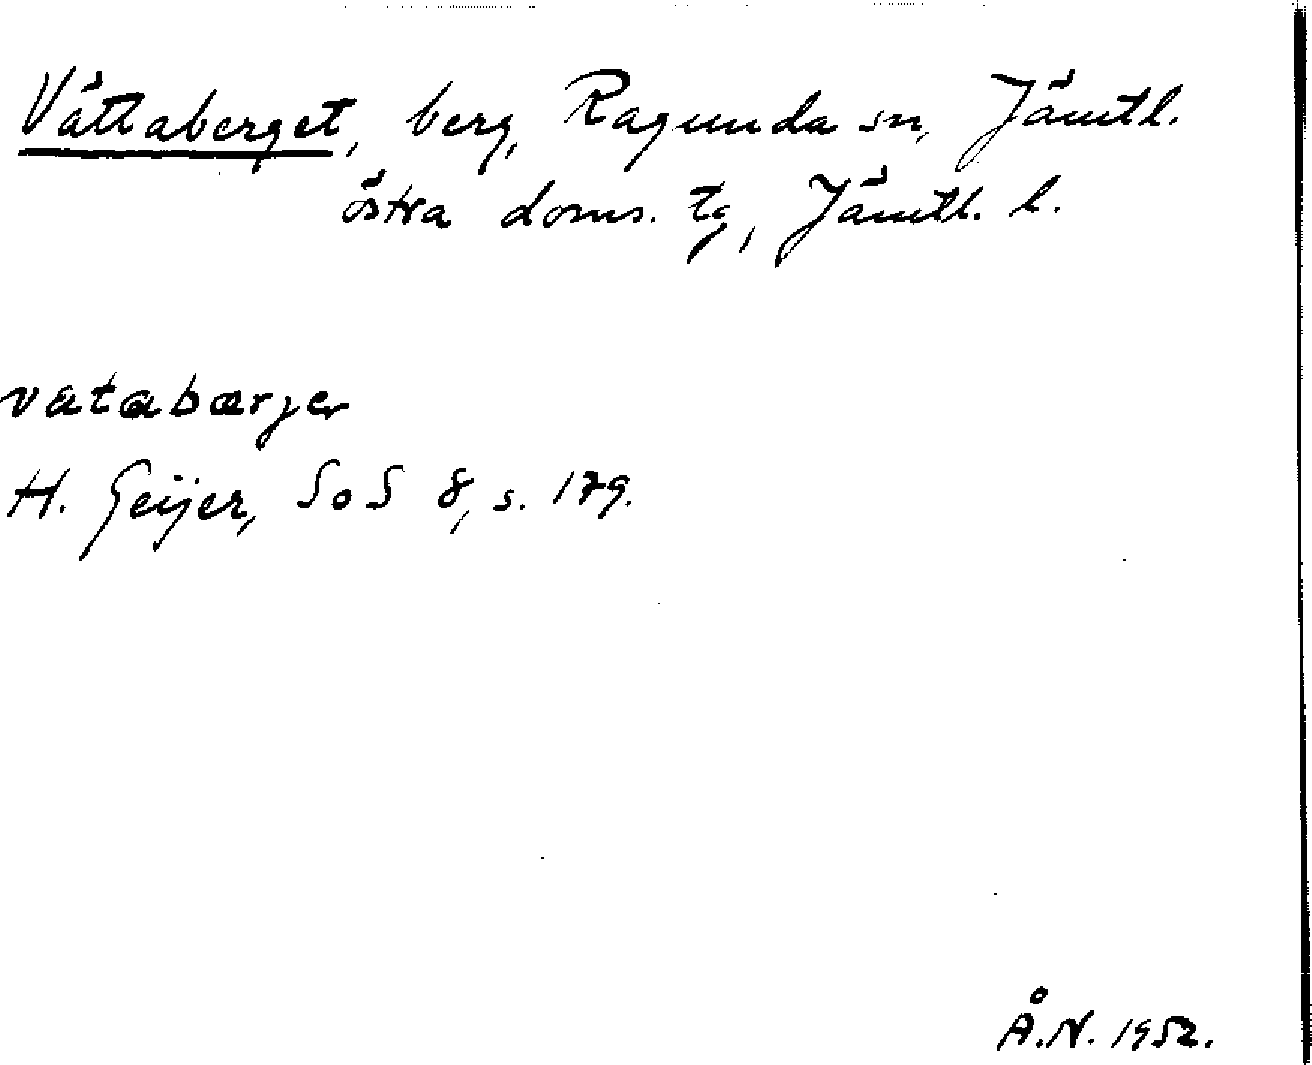 Vättaberget, berg, Ragunda sn, Jämtl.
östra doms. tg, Jämtl. l.
vatabærjer
H. Geijer, SoS 8, s. 179.
Å.N. 1952.